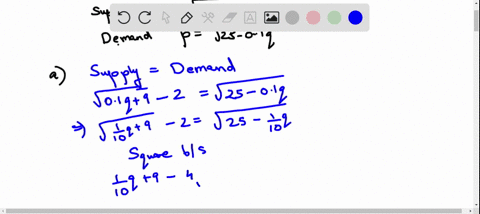 Supp
Demand p = √25-0.1q
a) Supply = Demand
√0.1q+9 - 2 = √25-0.1q
⇒) √1/10 q+9 - 2 = √25 - 1/10 q
Square b/s
1/10 q +9 - 4